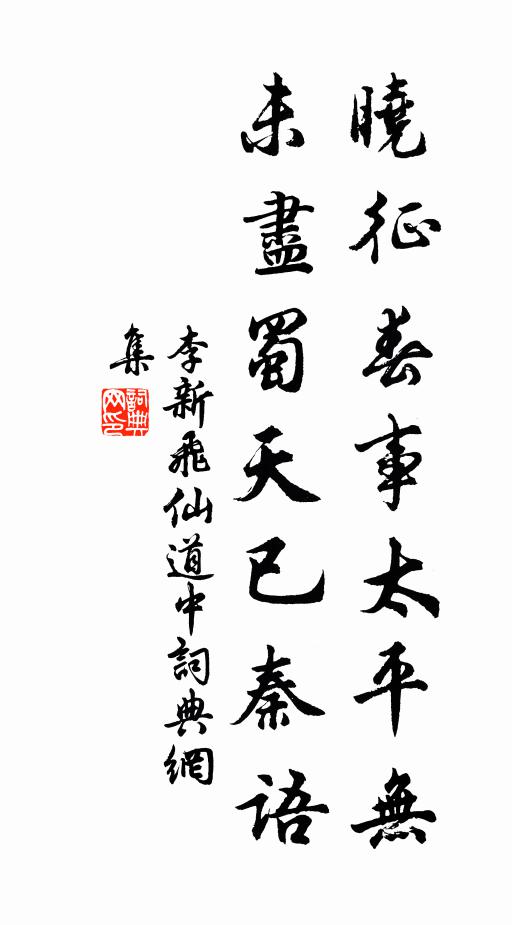 曉征春事太平無
未盡蜀天已秦語
李新飛仙道中詞典網
集
詞典
网印